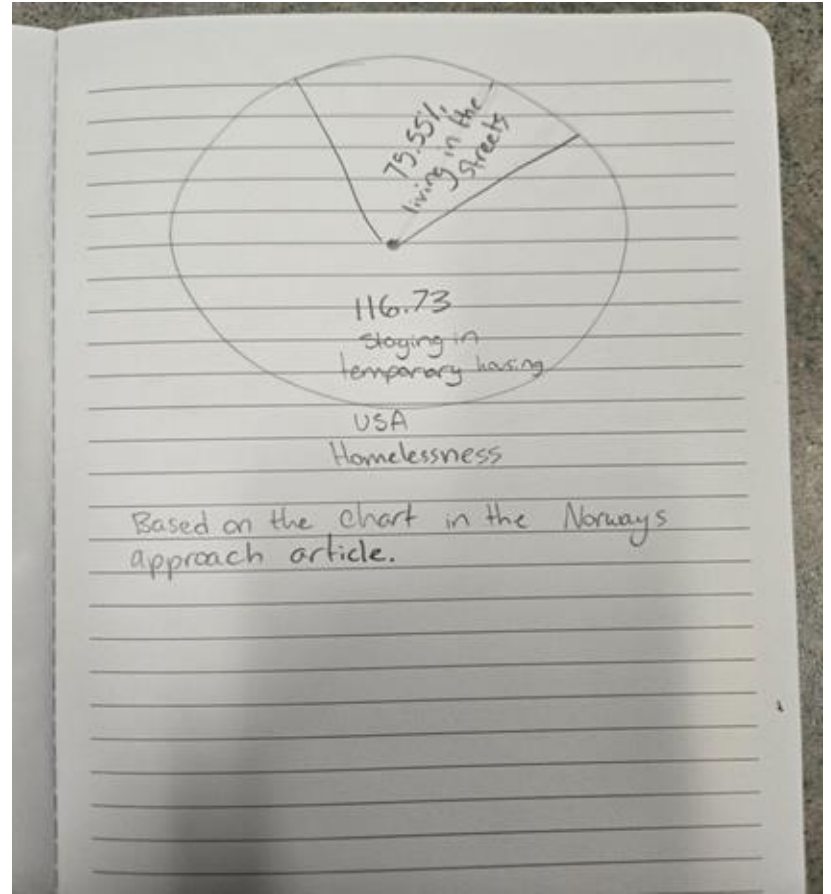 75.55%
living in the
streets
116.73
Staying in
temporary housing
USA
Homelessness
Based on the chart in the Norways
approach article.